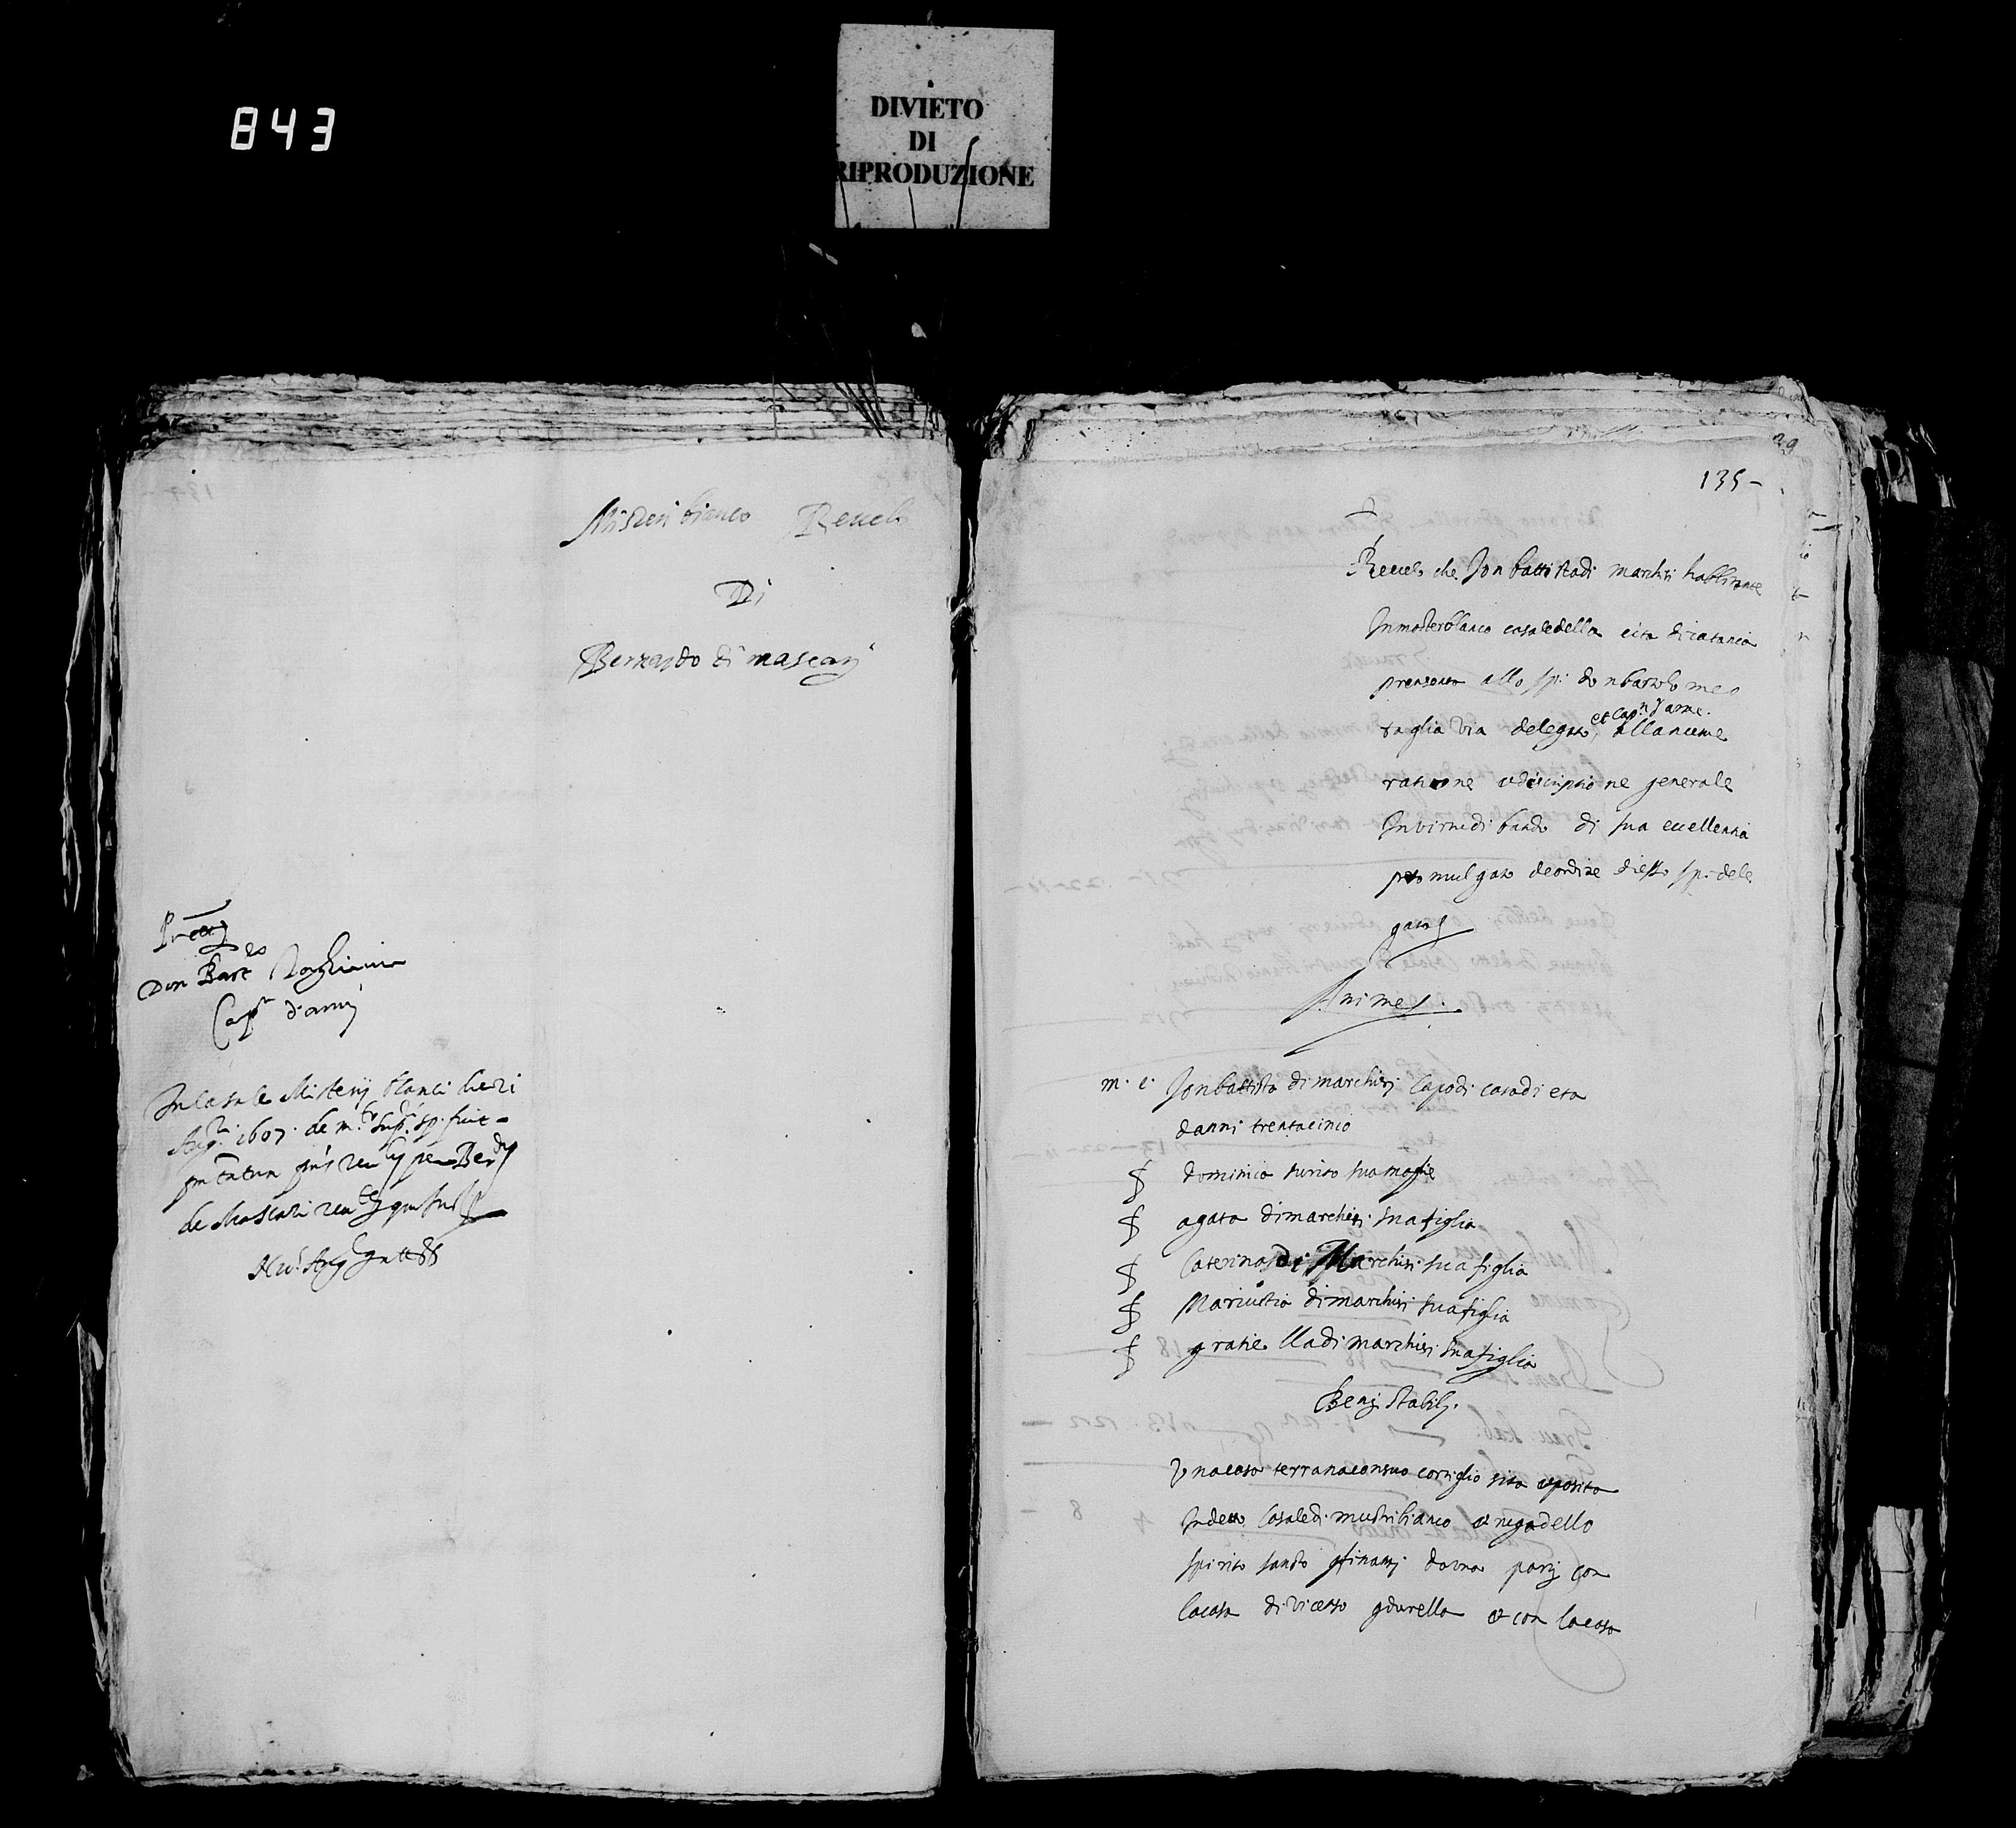 843
DIVIETO
DI
RIPRODUZIONE
Misteri bianco Revelo
Di
Bernardo di mascari
Don Bart.eo Tagliavia
Cap.n d'armi
In Casale Misterij blanci
Aug.ti 1607. de m.to sup.ti sp. fuit
de Mascari
29
135-
Revelo che Jonbattista di marchisi habbitante
In mosterblanco casale della cita di catania
presenta allo sp. don bartolomeo
taglia via delegato, et cap.n d'arme. alla nume
ratione et discriptione generale
In virtu di bando di sua eccellenza
promulgato de ordine di esso sp. dele
gato
Anime.
m. c. Jonbattista di marchisi Capo di casa di eta
danni trentacinco
dominica surito sua mogle
agata di marchisi sua figlia
Caterina di Marchisi sua figlia
di marchisi sua figlia
gratiella di marchisi sua figlia
Benj stabilj.
Una casa terrana con suo cortiglio sita et posita
In detto Casale di mustribianco
spirito santo da una parti con
la casa di vicenso gdurella et con la casa